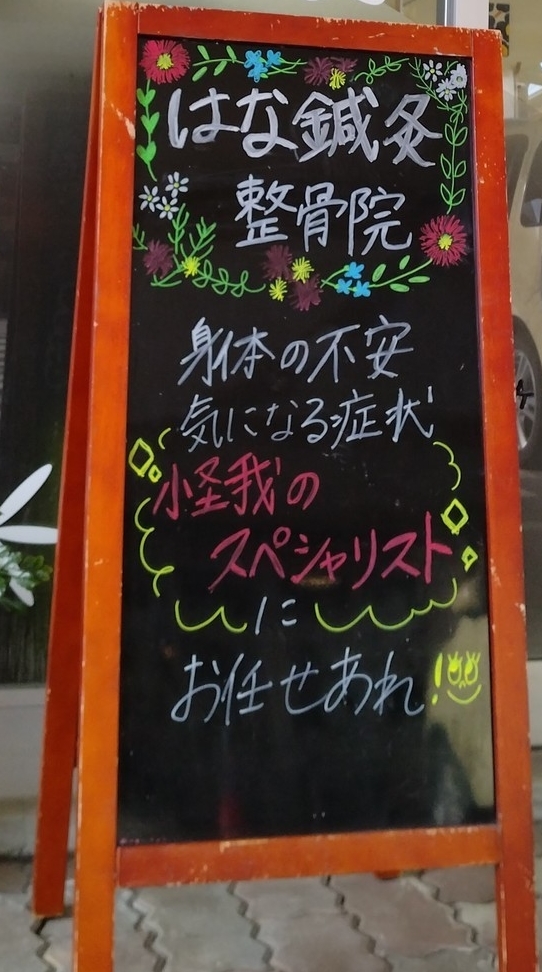 はな鍼灸
整骨院
身体の不安
気になる症状
怪我の
スペシャリスト
に
お任せあれ!